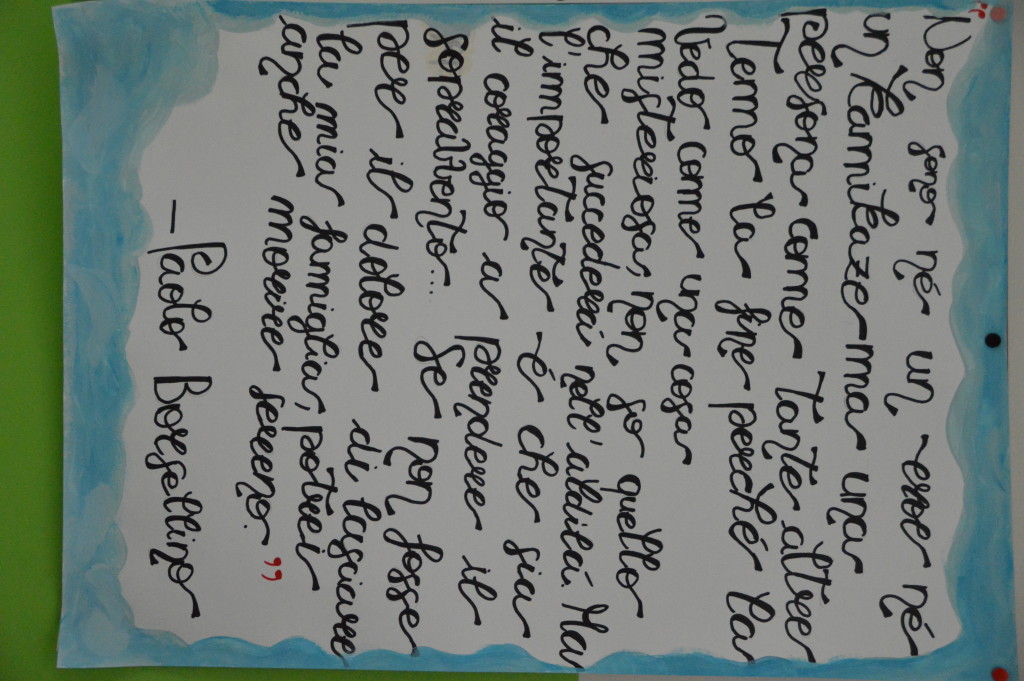 "Non sono né un eroe né
un Kamikaze ma una
persona come tante altre
Temo la fine perché la
Vedo come una cosa
misteriosa, non so quello
che succederá nell'aldilá. Ma
l'importante é che sia
il coraggio a prendere il
sopravvento... Se non fosse
per il dolore di lasciare
la mia famiglia, potrei
anche morire sereno."
– Paolo Borsellino